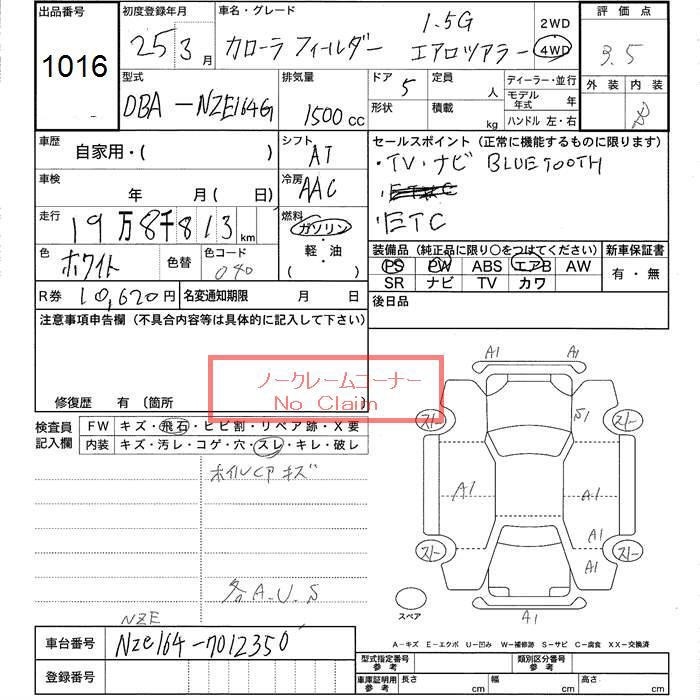 出品番号 初度登録年月 車名・グレード 評価点
1016
25 3月 カローラ フィールダー 1.5G エアロツアラー 2WD 4WD 3.5
型式 排気量 ドア 定員 ディーラー・並行 外装 内装
DBA-NZE164G 1500cc 5 人 モデル年式 年 B
形状 積載 kg ハンドル 左・右
車歴 自家用・( ) シフト AT セールスポイント(正常に機能するものに限ります)
・TV・ナビ BLUETOOTH
車検 年 月(日) 冷房 AAC
・ETC
走行 19万8千813km 燃料 ガソリン・軽・油( )
色 ホワイト 色替 色コード 040
装備品(純正品に限り○をつけてください) 新車保証書
PS PW ABS エアB AW 有・無
SR ナビ TV カワ
R券 10,620円 名変通知期限 月 日 後日品
注意事項申告欄(不具合内容等は具体的に記入して下さい)
ノークレームコーナー
No Claim
修復歴 有(箇所 )
検査員記入欄 FW キズ・飛石・ヒビ割・リペア跡・X要
内装 キズ・汚レ・コゲ・穴・スレ・キレ・破レ
ホイルCAPキズ
各A.U.S
A1 A1
スト S1 スト
A1 A1
A1
スト A1 スト
スペア A1
NZE
車台番号 NZE164-7012350
A-キズ E-エクボ U-凹み W-補修跡 S-サビ C-腐食 XX-交換済
登録番号
型式指定番号参考 類別区分番号参考
車庫証明用参考 長さ cm 幅 cm 高さ cm